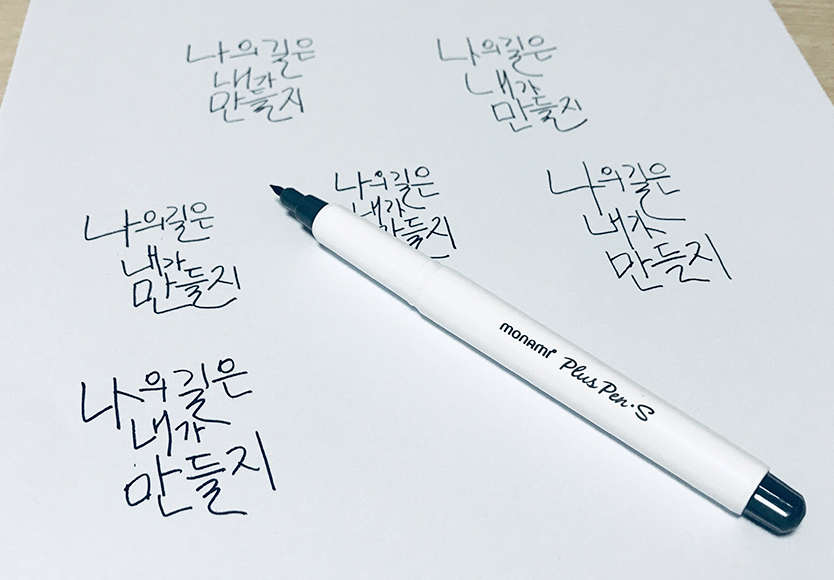 나의길은
내가
만들지
나의길은
내가
만들지
나의길은
내가
만들지
나의길은
내가
들지
나의길은
내가
만들지
나의길은
내가
만들지
monami Plus Pen·S